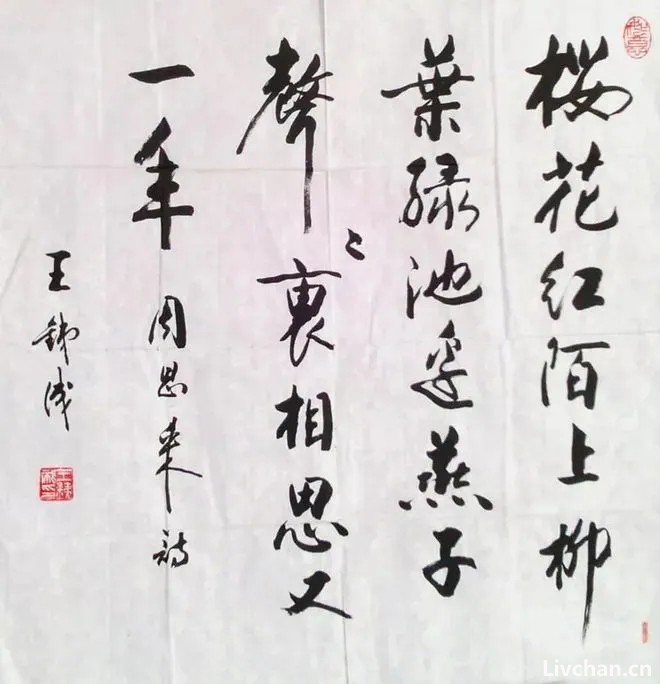 樱花红陌上柳
葉绿池邊燕子
聲々裏相思又
一年 周恩来詩
王铁成
Livchan.cn